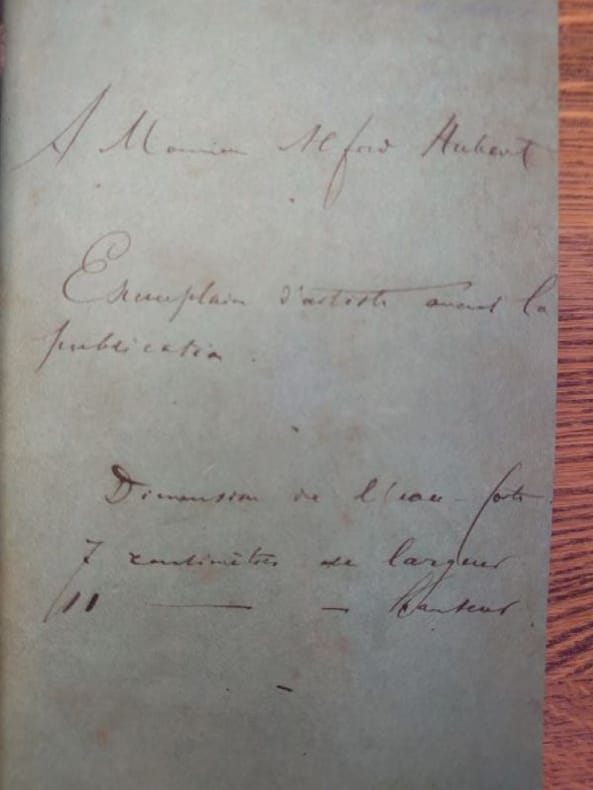 A Monsieur Alfred Hubert
Exemplaire d'artiste avant la
publication.
Dimension de l'eau-forte.
7 centimètres de largeur
11 — — hauteur.